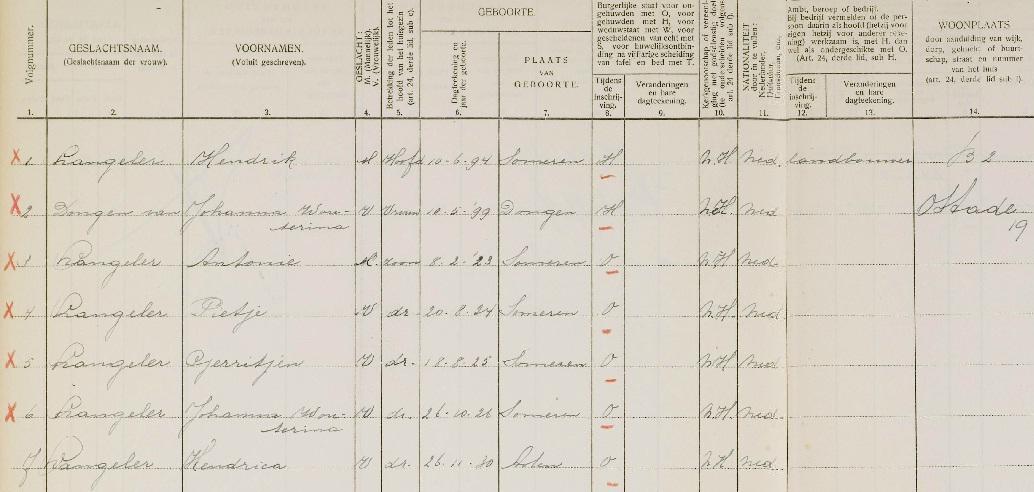 Volgnummer.
GESLACHTSNAAM.
(Geslachtsnaam der vrouw).
VOORNAMEN.
(Voluit geschreven).
GESLACHT:
M. (Mannelijk)
V. (Vrouwelijk)
Betrekking der leden tot het
hoofd van het huisgezin
(art. 24, derde lid sub c).
GEBOORTE.
Dagteekening en
jaar der geboorte.
PLAATS
VAN
GEBOORTE.
Burgerlijke staat voor on-
gehuwden met O, voor
gehuwden met H, voor
weduwstaat met W, voor
gescheidenen van echt met
S, voor huwelijksontbin-
ding na vijfjarige scheiding
van tafel en bed met T.
Tijdens
de
inschrij-
ving.
Veranderingen
en hare
dagteekening.
NATIONALITEIT
door in te vullen:
Nederlander,
Duitscher,
Franschman, enz.
Ambt, beroep of bedrijf.
Bij bedrijf vermelden of de per-
soon daarin als hoofd (hetzij voor
eigen hetzij voor anderer reke-
ning) werkzaam is, met H. dan
wel als ondergeschikte met O.
(Art. 24, derde lid, sub H.
Tijdens
de
inschrij-
ving.
Veranderingen
en hare
dagteekening.
WOONPLAATS
door aanduiding van wijk,
dorp, gehucht of buurt-
schap, straat en nummer
van het huis
(art. 24, derde lid sub l).
1. 2. 3. 4. 5. 6. 7. 8. 9. 10. 11. 12. 13. 14.
X 1 Langeler Hendrik M Hoofd 10-6-94 Someren H N.H. Ned. landbouwer B 2
X 2 Dongen van Johanna Wou- V Vrouw 10-5-'99 Dongen H N.H. Ned
terina
19
X 3 Langeler Antonie M. zoon 8-2-'23 Someren O N.H. Ned.
X 4 Langeler Pietje V dr. 20-8-24 Someren O N.H. Ned.
X 5 Langeler Gerritjen V dr. 18-8-25 Someren O N.H. Ned.
X 6 Langeler Johanna Wou- V dr. 26-10-26 Someren O N.H. Ned.
terina
7 Langeler Hendrica V dr. 26-11-30 Asten O N.H. Ned.